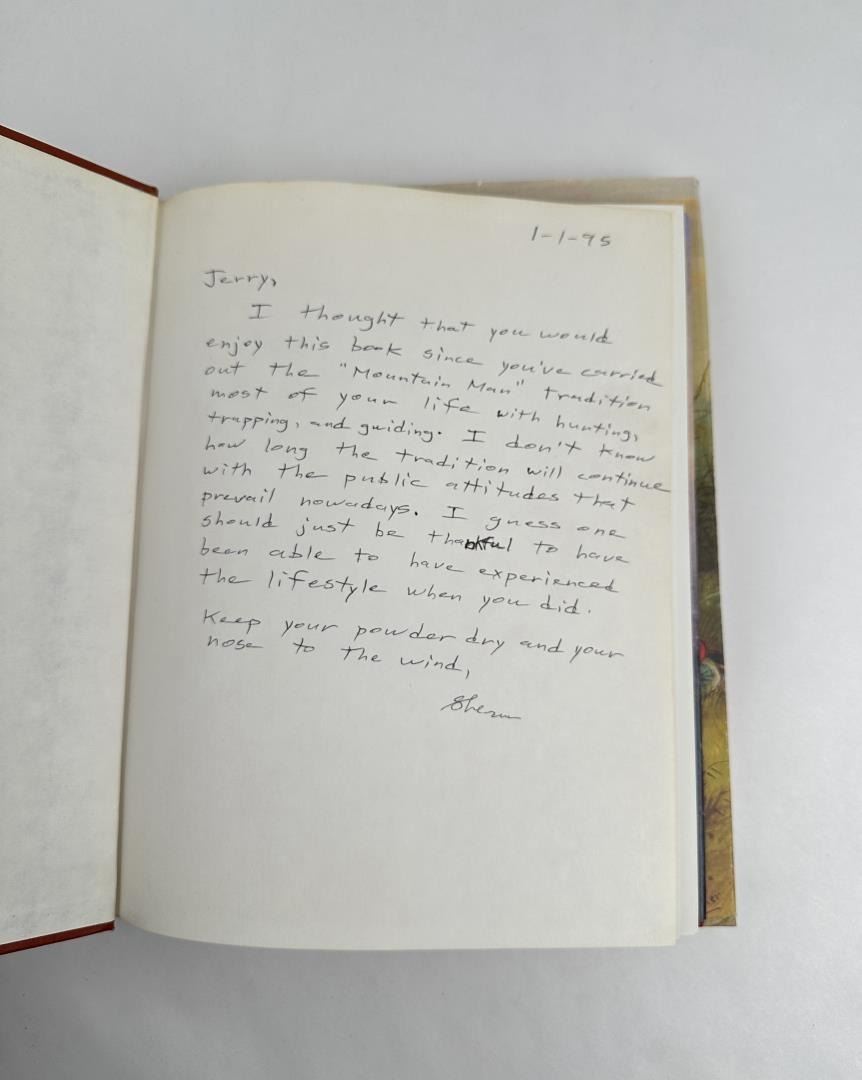 1-1-95
Jerry,
I thought that you would
enjoy this book since you've carried
out the "Mountain Man" tradition
most of your life with hunting,
trapping, and guiding. I don't know
how long the tradition will continue
with the public attitudes that
prevail nowadays. I guess one
should just be thankful to have
been able to have experienced
the lifestyle when you did.
Keep your powder dry and your
nose to the wind,